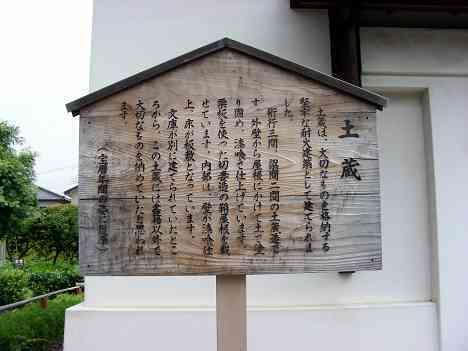 土蔵
土蔵は、大切なものを格納する
堅牢な耐火建物として建てられま
した。
桁行三間、梁間二間の土蔵造で
す。外壁から屋根にかけて土で塗
り固め、漆喰で仕上げています。
栗板を使った切妻造の鞘屋根を載
せています。内部は、壁が漆喰仕
上、床が板敷となっています。
文庫が別に建てられていたとこ
ろから、この土蔵には書類以外で
大切なものを納めていたと思われ
ます。